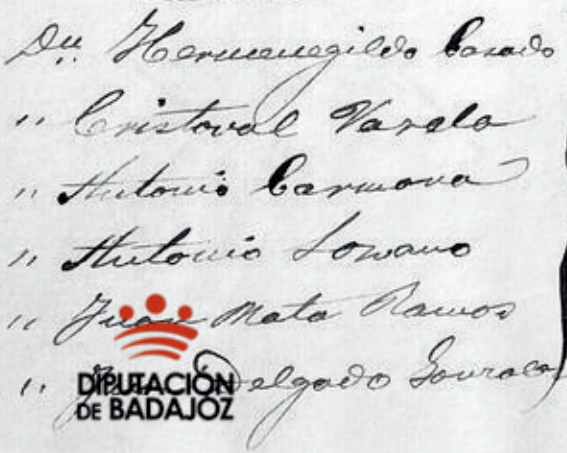 Dn Hermenegildo Casado
" Cristoval Varela
" Antonio Carmona
" Antonio Lozano
" Juan Mata Ramos
" Delgado
DIPUTACIÓN
DE BADAJOZ